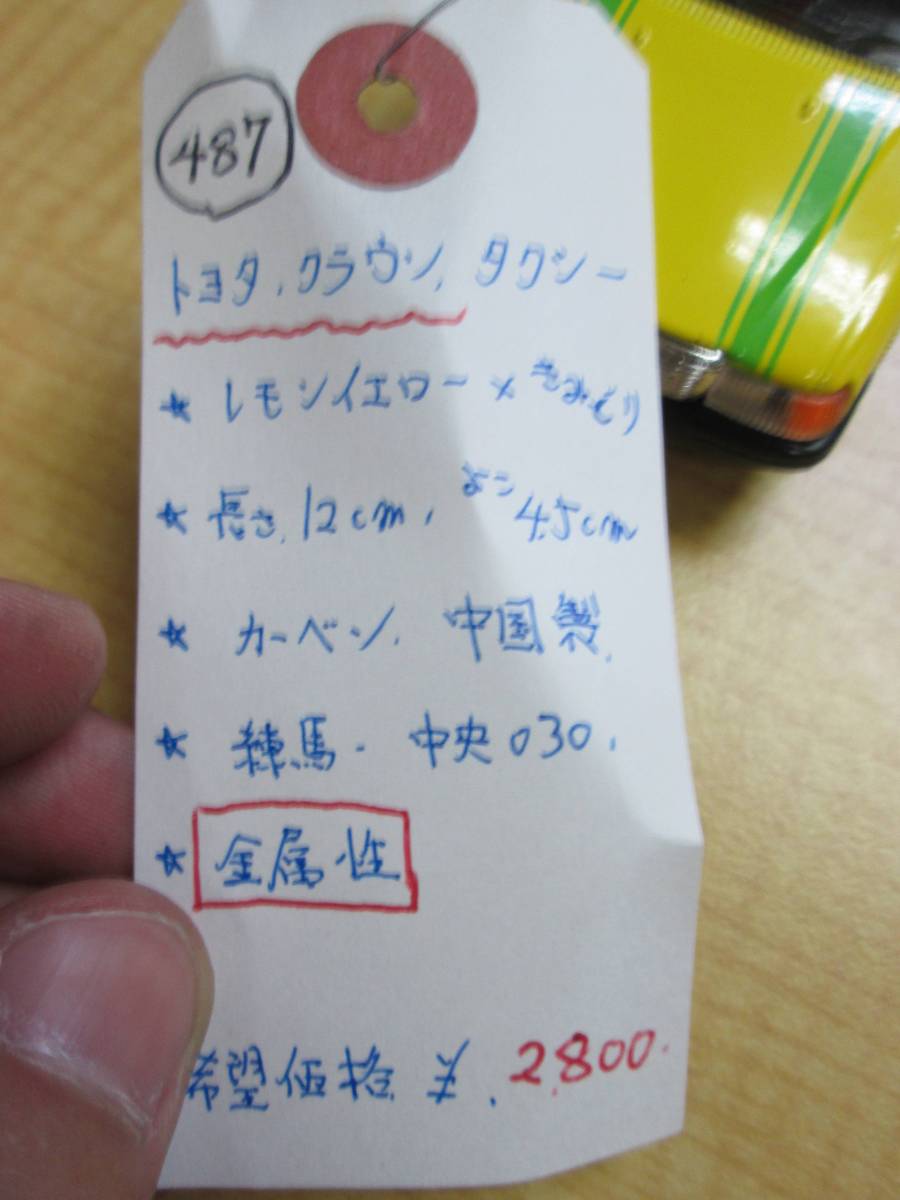 487
トヨタ.クラウン.タクシー
★ レモンイエロー × きみどり
★ 長さ.12cm, よこ 4.5cm
★ カーベン. 中国製.
★ 練馬. 中央030.
★ 金属性
希望価格 ¥. 2.800.